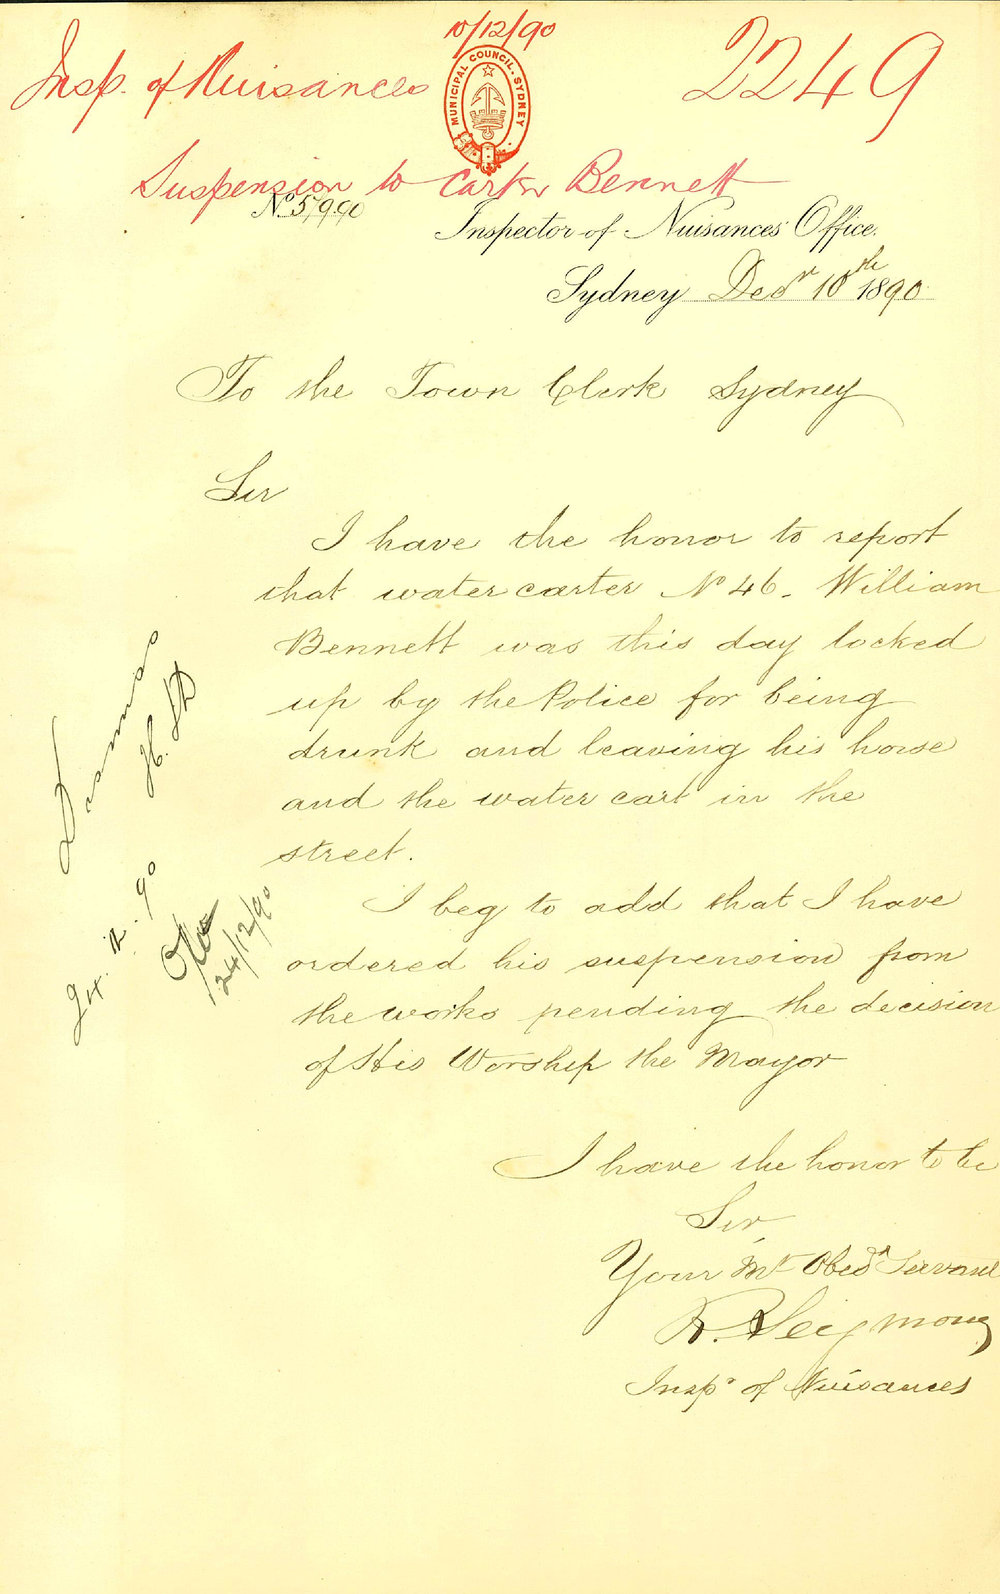 10/12/90
Insp. of Nuisances
2249
MUNICIPAL COUNCIL. SYDNEY
Suspension to Carter Bennett
No. 57990
Inspector of Nuisances' Office.
Sydney Decr 10th 1890
To the Town Clerk Sydney
Sir
I have the honor to report
that water carter No 46. William
Bennett was this day locked
up by the Police for being
drunk and leaving his horse
and the water cart in the
street.
I beg to add that I have
ordered his suspension from
the works pending the decision
of His Worship the Mayor
I have the honor to be
Sir
Your Mt Obedt Servant
R. Seigmong
Inspr of Nuisances
24.12.90
24/12/90